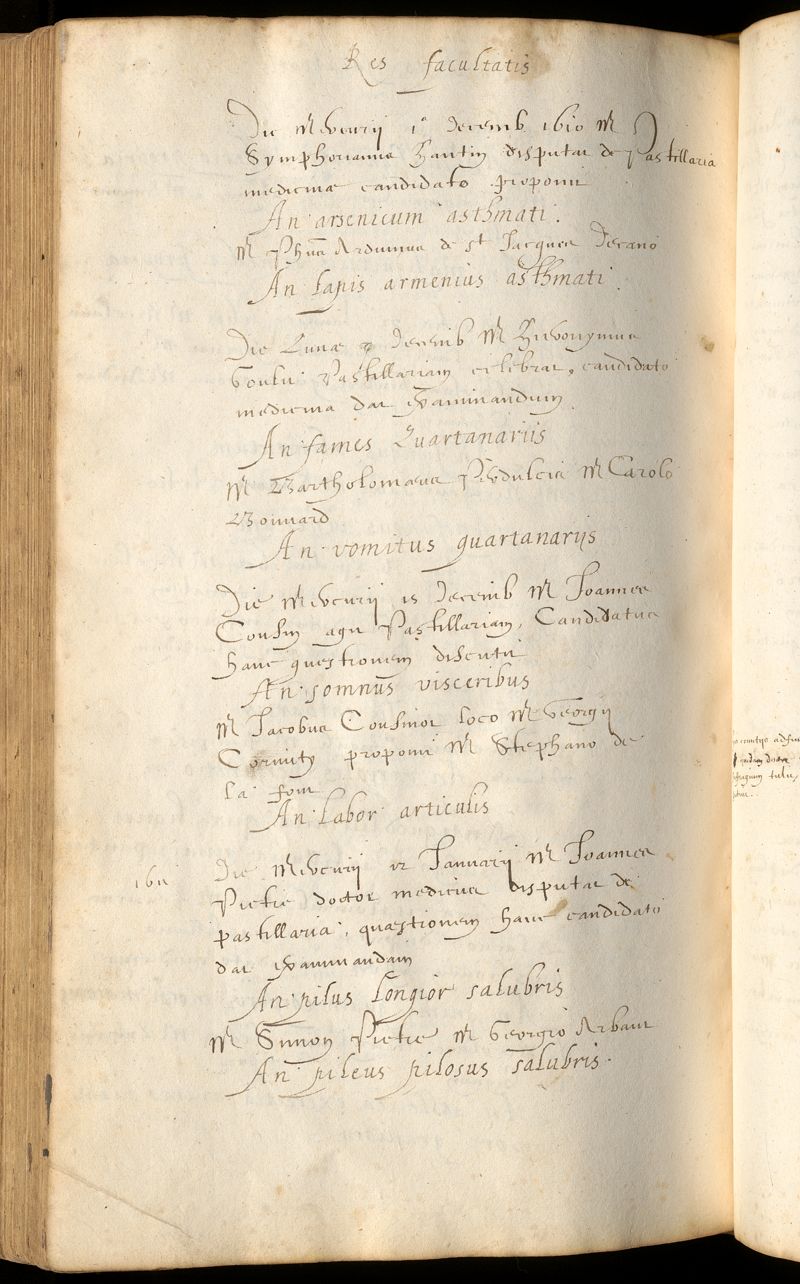 Res facultatis
Die Mercurii 1ª decemb 1610 M
Symphorianus Hautin disputat de Pastillaria
medicinæ candidato proponit
An arsenicum asthmati.
M Phūs Arduinus de st Jacques Decano
An lapis armenius asthmati.
Die Lunæ decemb M Hieronymus
Goulu Pastillariam celebrat, candidato
medicinæ dat examinandum
An fames Quartanariis
M Bartholomæus Perdulcis M Carolo
Bouvard
An vomitus quartanariis
Die Mercurii 15 decemb M Joannes
Cousin agit Pastillariam, Candidatus
hanc questionem discutit
An somnus visceribus
M Jacobus Cousinot loco M Georgii
Cornuty proponit M Stephano de
la font
An labor articulis
1611
Die Mercurii 12 Januarii M Joannes
Pietre doctor medicus disputat de
pastillaria, quæstionem hanc candidato
dat examinandam
An pilus longior salubris
M Simon Pietre M Georgio Arbaut
An pileus pilosus salubris.